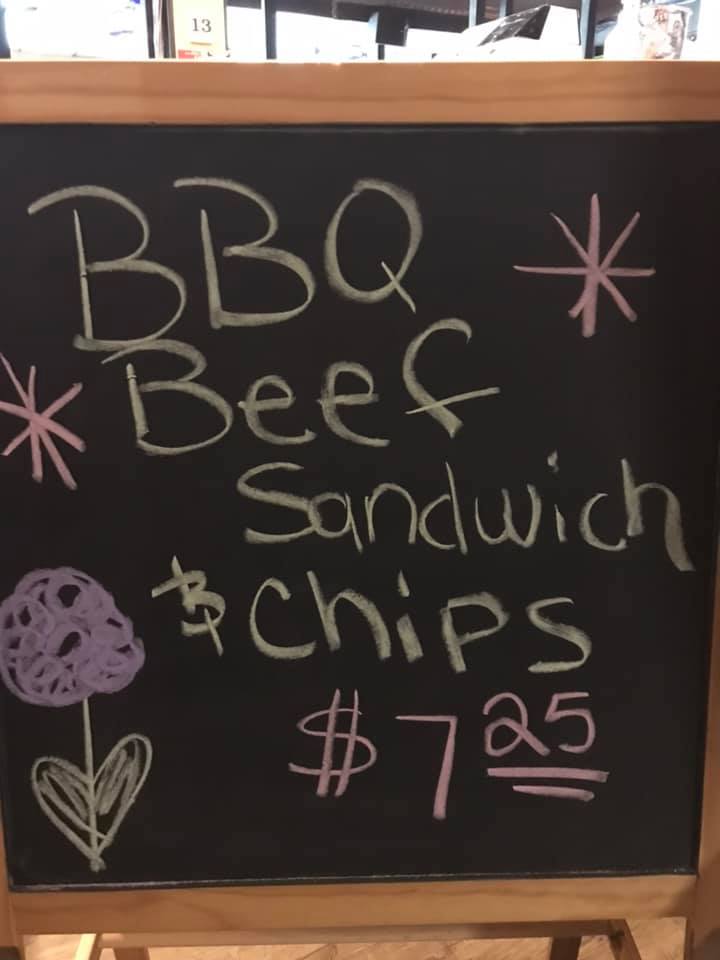 13
BBQ
Beef
Sandwich
& Chips
$7 25